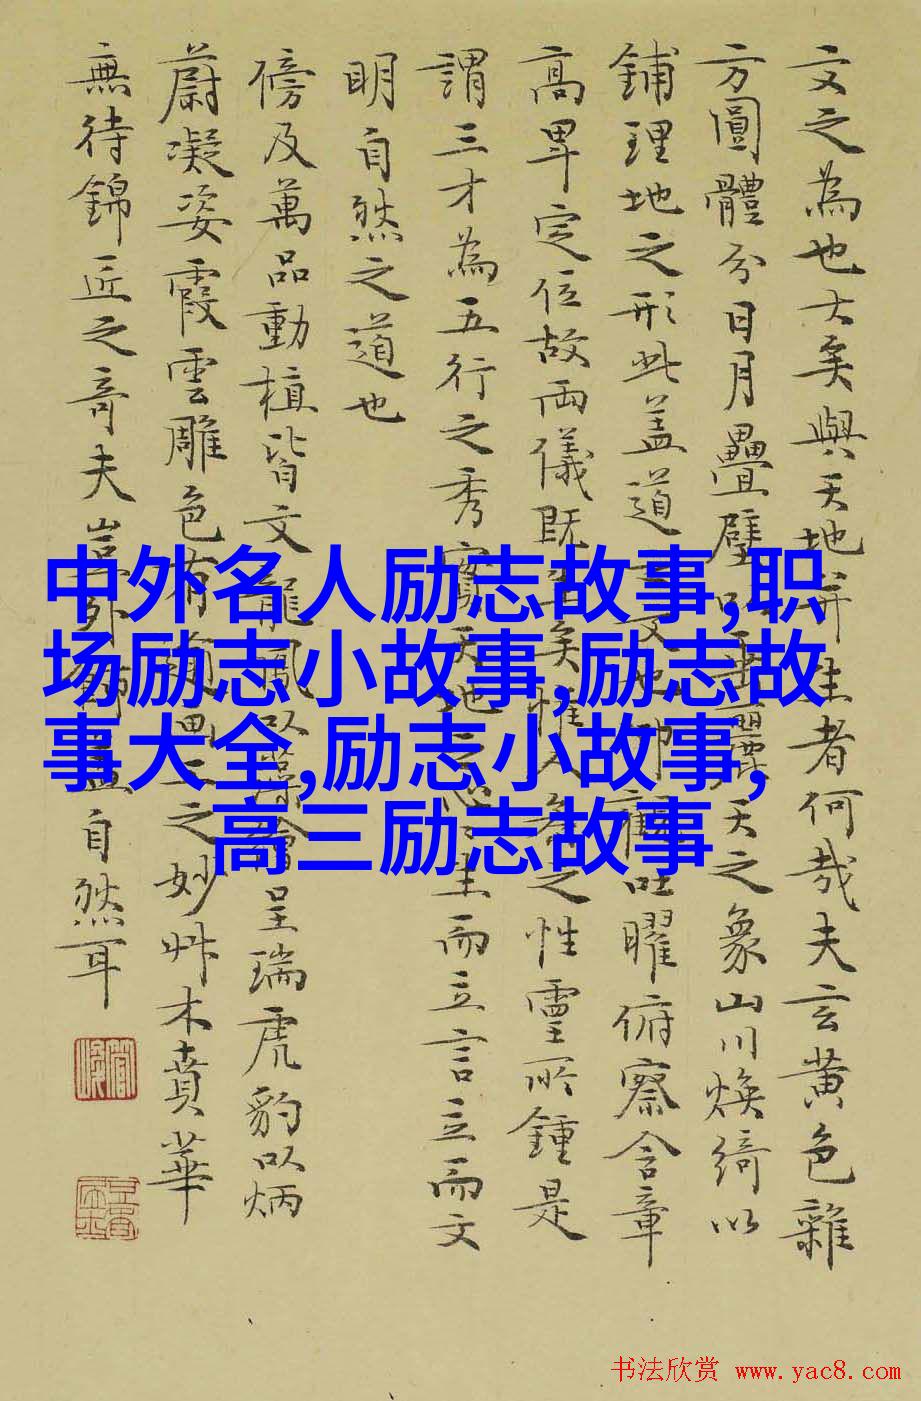 文之為也大矣與天地并生者何哉夫玄黄色雜
方圓體分日月疊璧以垂麗天之象山川煥綺以
鋪理地之形此盖道之文也仰觀吐曜俯察含章
高卑定位故兩儀既生矣惟人參之性靈所鍾是
謂三才為五行之秀實天地之心生而立言立而文
明自然之道也
傍及萬品動植皆文龍鳳以藻繪呈瑞虎豹以炳
蔚凝姿霞雲雕色有之妙艸木賁華
無待錦匠之奇夫豈外飾盖自然耳
中外名人励志故事,职
场励志小故事,励志故
事大全,励志小故事,
高三励志故事
书法欣赏 www.yac8.com